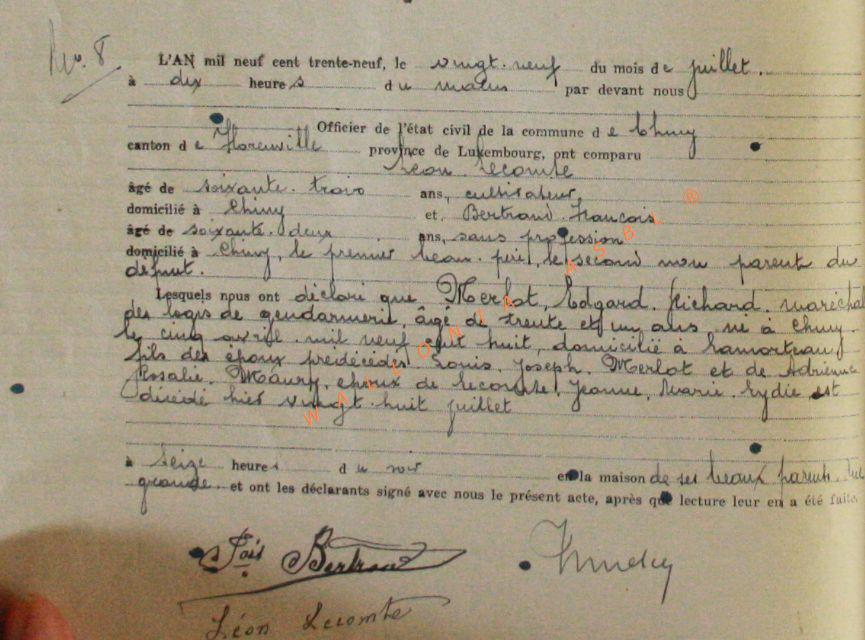 No. 8
L'AN mil neuf cent trente-neuf, le vingt-neuf du mois de juillet.
à dix heures du matin par devant nous
Officier de l'état civil de la commune de Chiny
canton de Florenville province de Luxembourg, ont comparu
Léon Lecomte
âgé de soixante-trois ans, cultivateur,
domicilié à Chiny et Bertrand François
âgé de soixante-deux ans, sans profession
domicilié à Chiny, le premier beau-père, le second non parent du
défunt.
Lesquels nous ont déclaré que Merlot, Edgard, Richard, maréchal
des logis de gendarmerie, âgé de trente et un ans, né à Chiny
le cinq avril mil neuf cent huit, domicilié à Lamorteau,
fils des époux prédécédés Louis, Joseph, Merlot et de Adrienne
Rosalie, Maury, époux de Lecomte, Jeanne, Marie, Lydie est
décédé hier vingt-huit juillet
à seize heures du soir en la maison de ses beaux parents, rue
grande et ont les déclarants signé avec nous le présent acte, après que lecture leur en a été faite.
Fois Bertrand
Léon Lecomte
WALLONIE ASBL ®